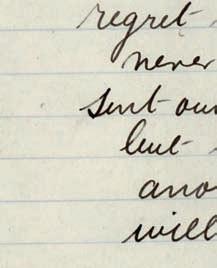 regret
never
sent our
but
ano
will